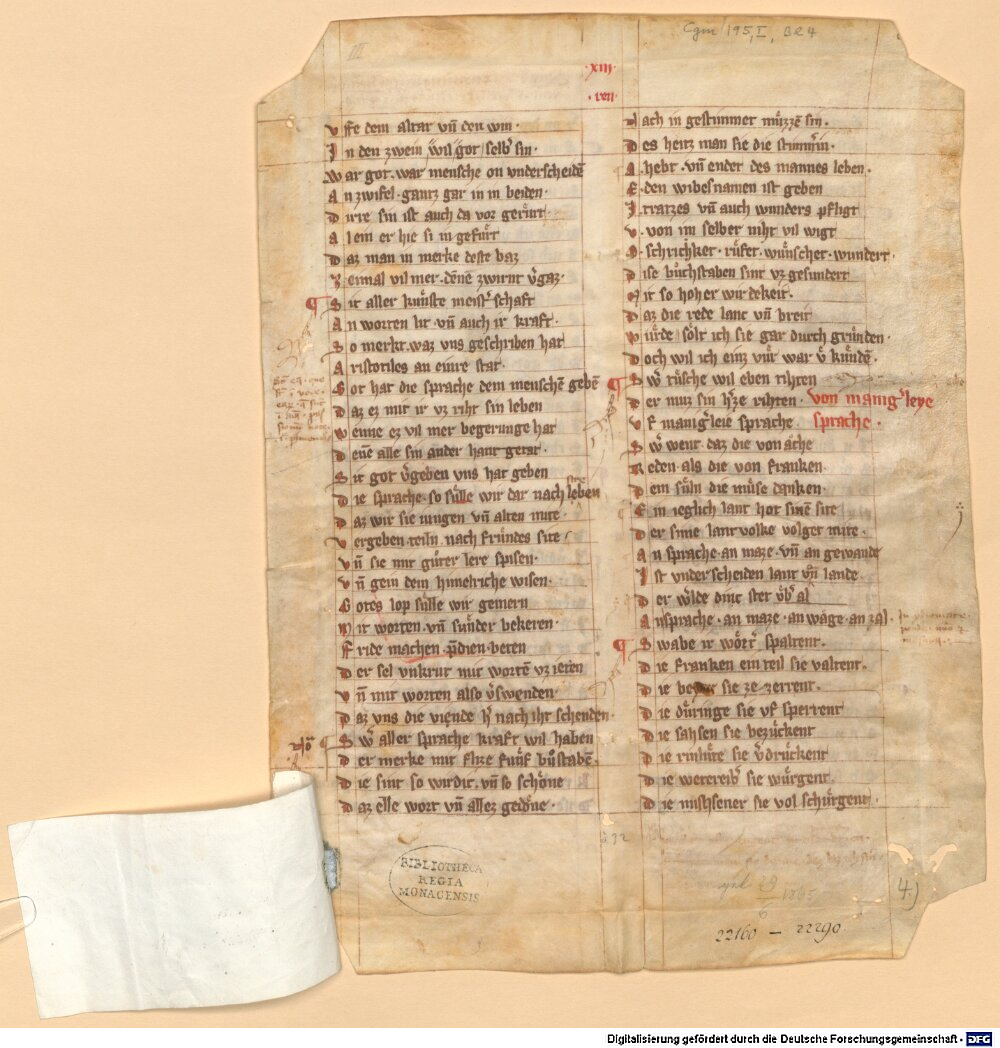 III
Cgm 195, I, Bl 4
·xiii·
vffe dem altar vn̄ den win·
In den zwein wil got selb' sin·
War got· war mensche on vnderscheidē
An zwifel· gantz gar in in beiden·
Dirre sin ist auch da vor gerůrt·
Alein er hie si in gefůrt
Daz man in merke deste baz
Zeinmal vil mer· denne zwirnt v'gaz·
Sit aller kunste meist'schaft
An worten lit· vn̄ auch ir kraft·
So merkt· waz vns geschriben hat
Aristotiles an einre stat·
Got hat die sprache dem menschē gebē
Daz ez mit ir vz riht sin leben
Wenne ez vil mer begerunge hat
Dene alle sin ander hant getat·
Sit got v'geben vns hat geben
Die sprache· so sülle wir dar nach streben
Daz wir sie iungen vn̄ alten mite·
Vergeben teiln nach frundes site
Vn̄ sie mit gůter lere spisen·
Vn̄ gein dem himelriche wisen·
Gotes lop sülle wir gemern
Mit worten· vn̄ sunder bekeren·
Fride machen· p̄dien· beten
Der sel vnkrut mit wortē vz ieten
Vn̄ mit worten also v'swenden
Daz vns die viende h' nach iht schenden·
Sw' aller sprache kraft wil haben
Der merke mit flize fünf bůstabē
Die sint so wirdic· vn̄ so schöne
Daz elle wort vn̄ allez gedöne·
Nach in gestimmet müzzē sin·
Des heizt man sie die stimm'in·
A· hebt· vn̄ endet des mannes leben·
E· den wibes namen ist geben
I· tratzes vn̄ auch wunders pfligt
V· von im selber niht vil wigt
O· schricket· růfet· wunschet· wundert·
Dise bůchstaben sint vz gesundert
Mit so hoher wirdekeit·
Daz die rede lanc vn̄ breit
Würde· sölt ich sie gar durch gründen·
Doch wil ich einz für war v' kündē·
Sw' tüsche wil eben tihten
Der muz sin h'ze rihten· von manig'leye
Vf manig'leie sprache· sprache·
Sw' went· daz die von ache
Reden als die von franken·
Dem süln die müse danken·
Ein ieglich lant hot sinē site
Der sime lantvolke volget mite·
An sprache· an maze· vn̄ an gewande
Ist vnderscheiden lant vō lande
Der w'lde dinc stet üb' al
An sprache· an maze· an wage· an zal·
Swabe ir wört' spaltent·
Die franken ein teil sie valtent·
Die beyer sie ze zerrent·
Die düringe sie vf sperrent
Die sahsen sie bezückent
Die rinlüte sie v'drückent
Die wetereib' sie würgent·
Die mishsener sie vol schürgent·
32
BIBLIOTHECA
REGIA
MONACENSIS
4)
22160 — 22290
Digitalisierung gefördert durch die Deutsche Forschungsgemeinschaft - DFG